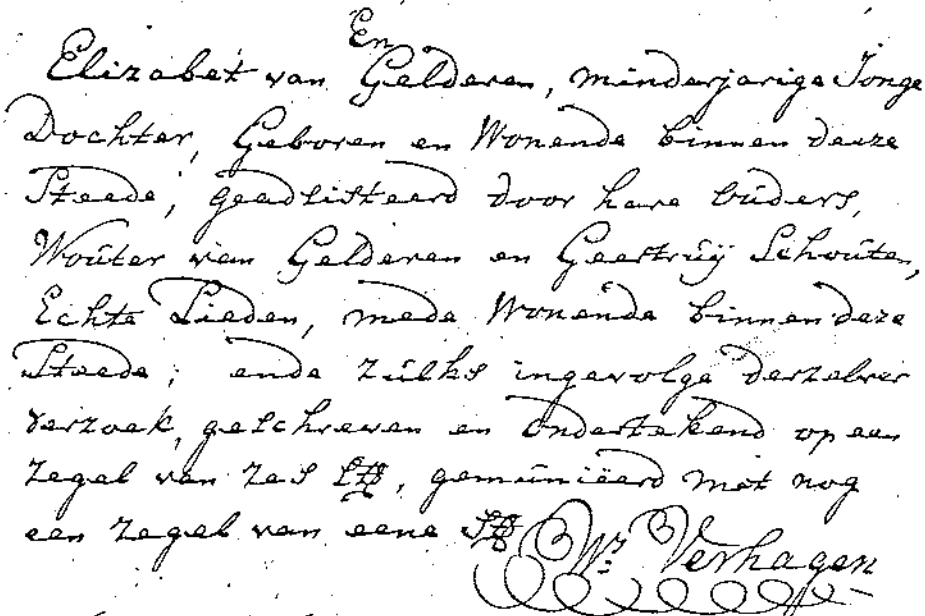 En
Elizabet van Gelderen, minderjarige Jonge
Dochter, Geboren en Wonende binnen deeze
Steede, geadsisteerd door hare Ouders,
Wouter van Gelderen en Geertruij Schouten,
Echte Lieden, mede Wonende binnen deze
Steede; ende zulks ingevolge derzelver
verzoek, geschreven en Ondertekend op een
Zegel van zes, gemuniëerd met nog
een Zegel van eene
Wr. Verhagen